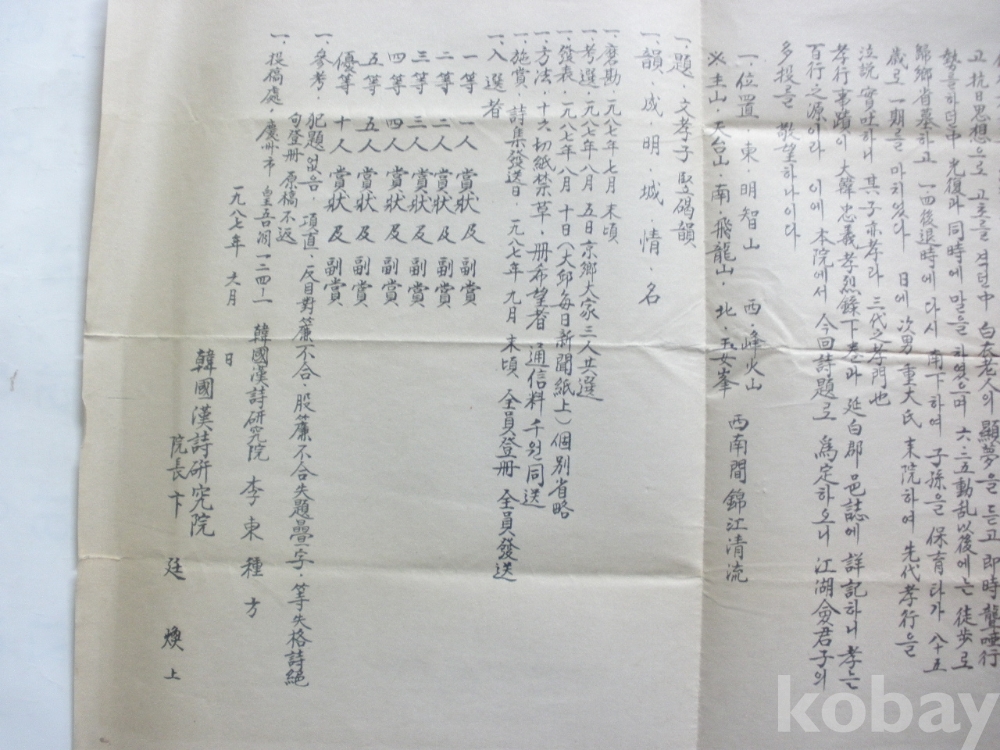 고 抗日思想으로 고초를 겪던中 白衣老人의 顯夢을 듣고 即時 聾啞行
勢를하던中 光復과 同時에 말을 하였으며 六·二五動乱以後에는 徒歩로
歸鄉省墓하고 一四後退時에 다시 南下하여 子孫을 保育타가 八十五
歲로 一期를 마치었다 日에 次男 重大氏 末院하여 先代孝行을
泣說實吐하니 其子亦孝라 三代之孝門也
孝行事蹟이 大韓忠義孝烈錄下卷과 延白郡邑誌에 詳記하니 孝는
百行之源이라 이에 本院에서 今回詩題로 爲定하오니 江湖僉君子의
多投를 敬望하나이다
一. 位置. 東. 明智山 西. 峰火山 西南間錦江清流
※主山. 天台山. 南. 飛龍山. 北. 玉女峯
一. 題. 文孝子 竪碣韻
一. 韻. 成 明. 城. 情. 名
一. 磨勘. 一九八七年 七月 末頃
一. 考選. 一九八七年 八月 五日 京鄉大家 三人共選
一. 發表. 一九八七年 八月 十日 (大邱每日新聞紙上) 個別省略
一. 方法. 十六切紙禁草. 册布望者 通信料 千원同送
一. 施賞. 詩集發送日. 一九八七年 九月 末頃. 全員登册 全員發送
一. 入選者
一等 一人 賞狀 及 副賞
二等 二人 賞狀 及 副賞
三等 三人 賞狀 及 副賞
四等 四人 賞狀 及 副賞
五等 五人 賞狀 及 副賞
優等 十人 賞狀 及 副賞
一. 參考. 犯題없음. 項直. 反目對簾不合. 股簾不合失題疊字. 等失格詩絕
句登册 原稿不返
一. 提稿處. 慶州市 皇吾洞 一二四-一 韓國漢詩研究院 李東種方
一九八七年 六月 日
韓國漢詩研究院
院長 卞廷煥 上
kobay